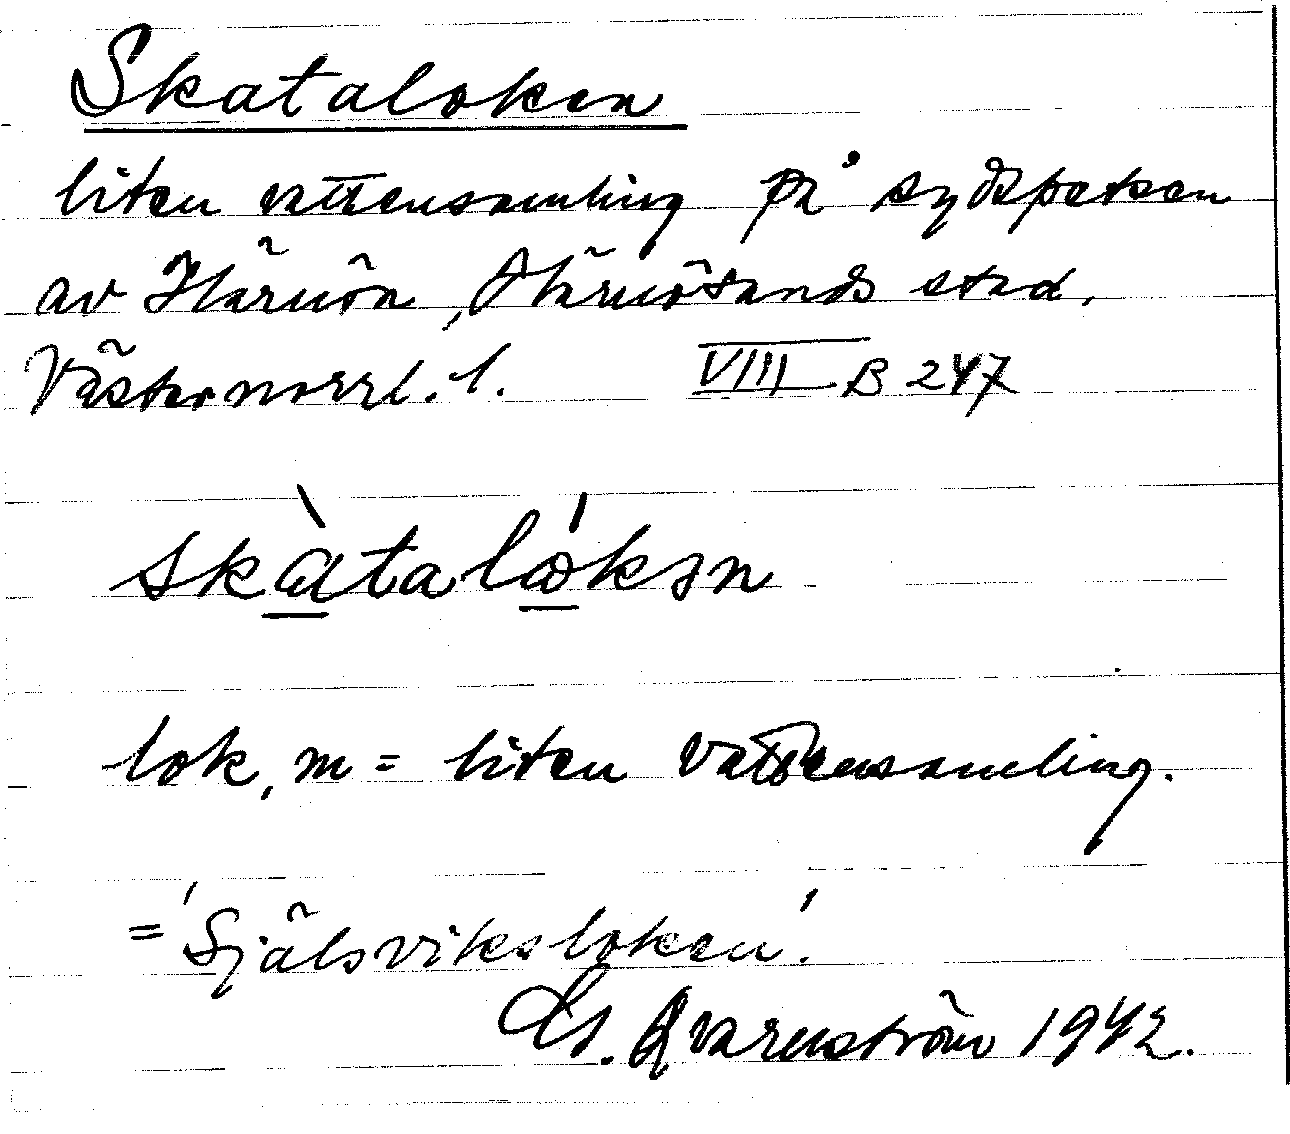 Skataloken
liten vattensamling på sydspetsen
av Härnön, Härnösands stad,
Västernorrl. l. VIII B 247
skàtalókən
lok, m = liten vattensamling.
= 'Själsviksloken'.
Qvarnström 1942.